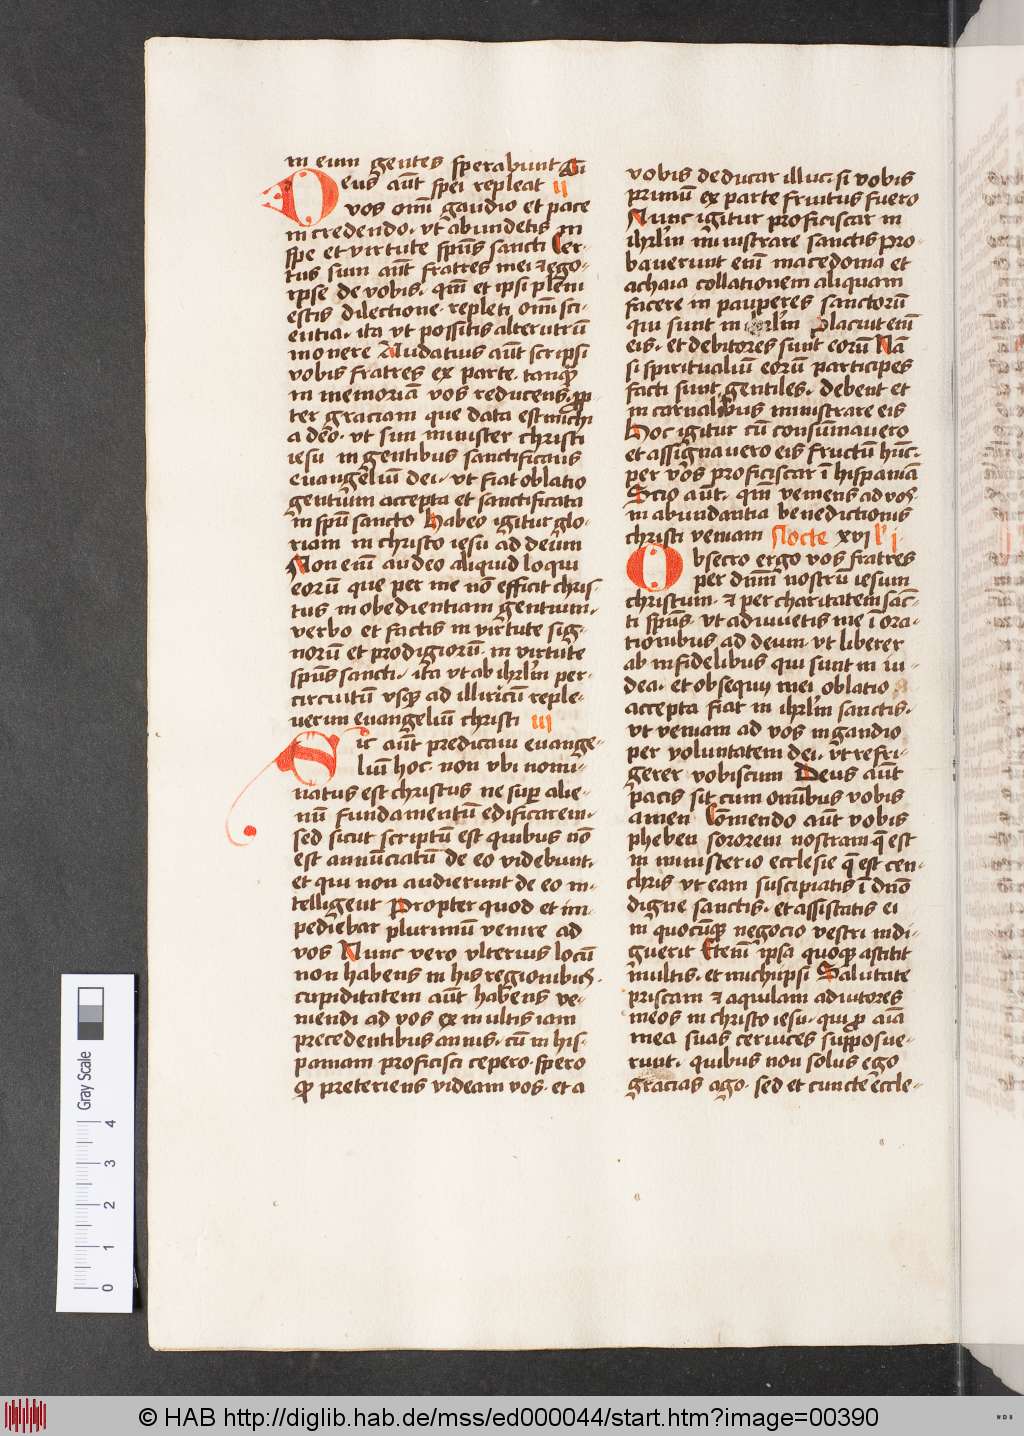 in eum gentes sperabunt
Deus aūt spei repleat ii
vos omī gaudio et pace
in credendo. vt abundetis in
spe et virtute spūs sancti Cer-
tus sum aūt fratres mei ⁊ ego
ipse de vobis. qm̄ et ipsi pleni
estis dilectione. repleti omī sci-
entia. ita vt possitis alterutrū
monere Audatius aūt scripsi
vobis fratres ex parte. tanqȝ
in memoriā vos reducens. pp̄-
ter graciam que data est michi
a deo. vt sim minister christi
iesu in gentibus sanctificans
euangeliū dei. vt fiat oblatio
gentium accepta et sanctificata
in spū sancto Habeo igitur glo-
riam in christo iesu ad deum
Non enī audeo aliquid loqui
eorū que per me nō efficit chris-
tus in obedientiam gentium.
verbo et factis in virtute sig-
norū et prodigiorū. in virtute
spūs sancti. ita vt ab ihrlm̄ per
circuitū vsqȝ ad illiricū reple-
uerim euangeliū christi iii
Sic aūt predicaui euange-
liū hoc. non vbi nomi-
natus est christus ne suꝑ alie-
nū fundamentū edificarem.
sed sicut scriptū est quibus nō
est annūciatū de eo videbunt.
et qui non audierunt de eo in-
telligent Propter quod et im-
pediebar plurimū venire ad
vos Nunc vero vlterius locū
non habens in his regionibus.
cupiditatem aūt habens ve-
niendi ad vos ex multis iam
precedentibus annis. cū in his-
paniam proficisci cepero. spero
qȝ preteriens videam vos. et a
vobis deducar illuc. si vobis
primū ex parte fruitus fuero
Nunc igitur proficiscar in
ihrlm̄ ministrare sanctis Pro-
bauerunt enī macedonia et
achaia collationem aliquam
facere in pauperes sanctorū
qui sunt in ihrlm̄ Placuit enī
eis. et debitores sunt eorū Nā
si spiritualiū eorū participes
facti sunt gentiles. debent et
in carnalibus ministrare eis
Hoc igitur cū consūmauero
et assignauero eis fructū hūc.
per vos proficiscar ī hispaniā
Scio aūt. qm̄ veniens ad vos
in abundantia benedictionis
christi veniam Nocte xvi lc̄ i
Obsecro ergo vos fratres
per dnm̄ nostrū iesum
christum. ⁊ per charitatem sanc-
ti spūs. vt adiuuetis me ī ora-
tionibus ad deum. vt liberer
ab infidelibus qui sunt in iu-
dea. et obsequij mei oblatio
accepta fiat in ihrlm̄ sanctis.
vt veniam ad vos in gaudio
per voluntatem dei. vt refri-
gerer vobiscum Deus aūt
pacis sit cum omībus vobis
amen Cōmendo aūt vobis
pheben sororem nostram q̄ est
in ministerio ecclesie q̄ est cen-
chris vt eam suscipiatis ī dnō
digne sanctis. et assistatis ei
in quocūqȝ negocio vestri indi-
guerit Etenī ipsa quoqȝ astitit
multis. et michi ipsi Salutate
priscam ⁊ aquilam adiutores
meos in christo iesu. qui ꝓ aīa
mea suas ceruices supposue-
runt. quibus non solus ego
gracias ago. sed et cuncte eccle-
Gray Scale
0 1 2 3 4
© HAB http://diglib.hab.de/mss/ed000044/start.htm?image=00390